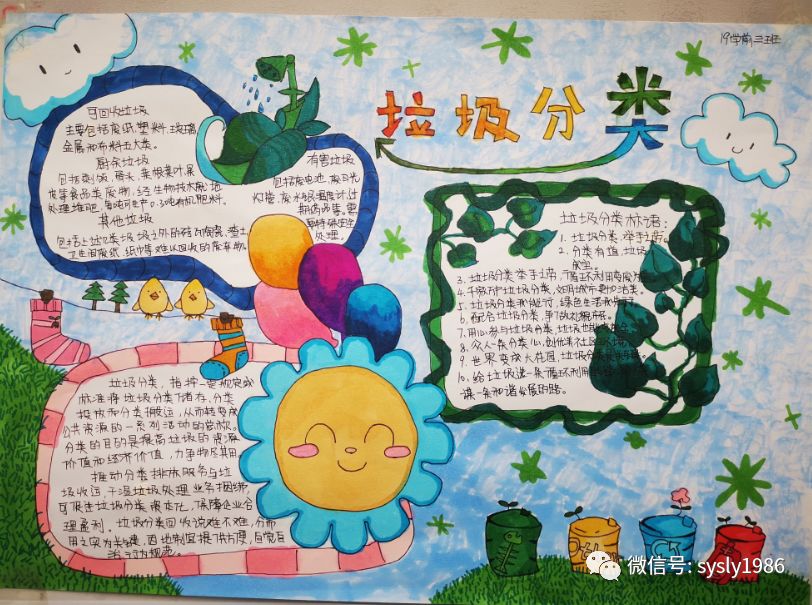 19学前三班
垃圾分类
可回收垃圾
主要包括废纸、塑料、玻璃、
金属和布料五大类。
厨余垃圾
包括剩饭、骨头、菜根菜叶、果
皮等食品类废物,经生物技术就地
处理堆肥,每吨可生产0.3吨有机肥料。
其他垃圾
包括上述几类垃圾之外的砖瓦陶瓷、渣土、
卫生间废纸、纸巾等难以回收的废弃物
有害垃圾
包括废电池、废日光
灯管、废水银温度计、过
期药品等,需
特殊安全
处理。
垃圾分类标语:
1. 垃圾分类,举手之劳。
2. 分类有道,垃圾
3. 垃圾分类举手之劳,循环利用
4. 垃圾分类,
5. 垃圾分类我能行,绿色生活
6. 配合垃圾分类,争
7. 用心参与垃圾分类,垃圾也
8. 众人一条分类心,创优美社区环境
9. 世界变成大花园,垃圾分类
10. 给垃圾一条循环利用
谋一条和谐发展的路。
垃圾分类,指按一定规定或
标准将垃圾分类储存、分类
投放和分类搬运,从而转变成
公共资源的一系列活动的总称。
分类的目的是提高垃圾的资源
价值和经济价值,力争物尽其用
推动分类排放服务与垃
圾收运、干湿垃圾处理业务捆绑,
可促进垃圾分类资本化,保障企业合
理盈利。垃圾分类回收说难不难,分而
用之实为关键,因地制宜提供方便,自觉自
治
微信号: sysly1986